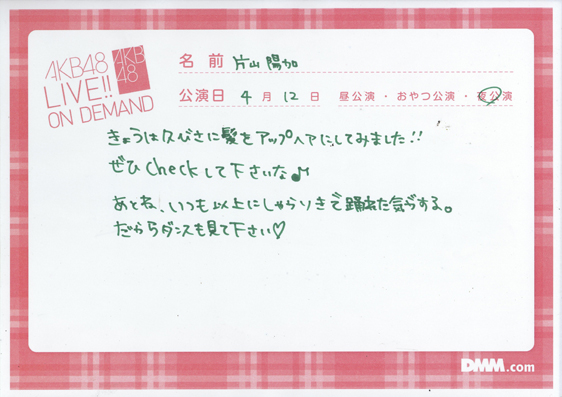 AKB48
LIVE!!
ON DEMAND
AKB
48
名前 片山陽加
公演日 4月12日 昼公演・おやつ公演・夜公演
きょうは久びさに髪をアップヘアにしてみました!!
ぜひCheckして下さいな♪
あとね、いつも以上にしゃらりきで踊れた気がする。
だからダンスも見て下さい♡
DMM.com